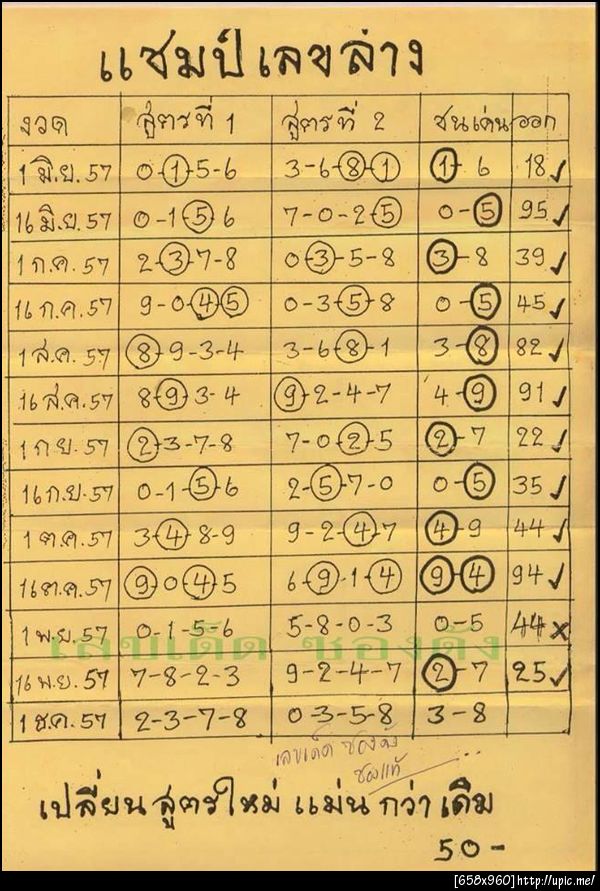 แชมป์เลขล่าง
งวด สูตรที่ 1 สูตรที่ 2 ชนเด่น ออก
1 มิ.ย. 57 0-1-5-6 3-6-8-1 1-6 18✓
16 มิ.ย. 57 0-1-5-6 7-0-2-5 0-5 95✓
1 ก.ค. 57 2-3-7-8 0-3-5-8 3-8 39✓
16 ก.ค. 57 9-0-4-5 0-3-5-8 0-5 45✓
1 ส.ค. 57 8-9-3-4 3-6-8-1 3-8 82✓
16 ส.ค. 57 8-9-3-4 9-2-4-7 4-9 91✓
1 ก.ย. 57 2-3-7-8 7-0-2-5 2-7 22✓
16 ก.ย. 57 0-1-5-6 2-5-7-0 0-5 35✓
1 ต.ค. 57 3-4-8-9 9-2-4-7 4-9 44✓
16 ต.ค. 57 9-0-4-5 6-9-1-4 9-4 94✓
1 พ.ย. 57 0-1-5-6 5-8-0-3 0-5 44×
เลขเด็ด ซองดัง
16 พ.ย. 57 7-8-2-3 9-2-4-7 2-7 25✓
1 ธ.ค. 57 2-3-7-8 0-3-5-8 3-8
เลขเด็ด ซองดัง
ซองแท้
เปลี่ยนสูตรใหม่ แม่นกว่าเดิม
50-
[658x960]http://upic.me/